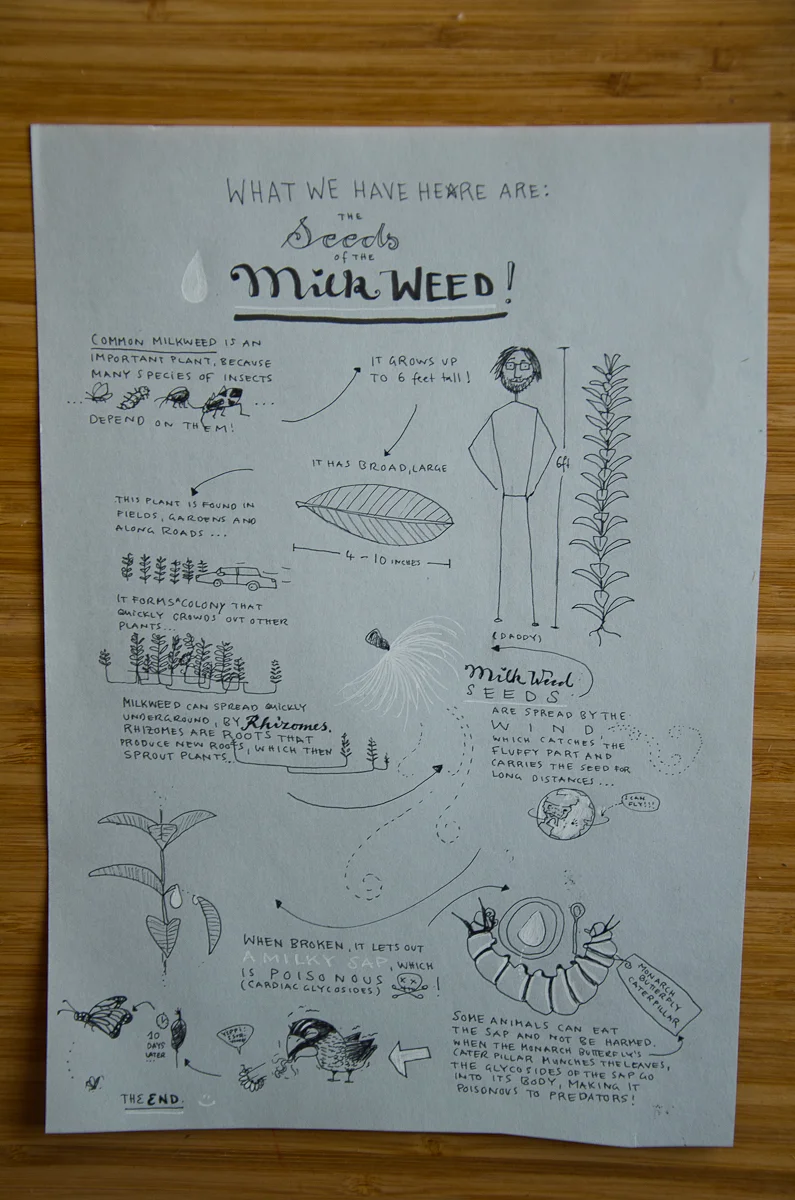 WHAT WE HAVE HERE ARE:
THE
Seeds
of THE
Milk WEED!
COMMON MILKWEED IS AN
IMPORTANT PLANT, BECAUSE
MANY SPECIES OF INSECTS
...
...
DEPEND ON THEM!
IT GROWS UP
TO 6 feet tall!
6ft
(DADDY)
IT HAS BROAD, LARGE
4 - 10 INCHES
THIS PLANT IS FOUND IN
FIELDS, GARDENS AND
ALONG ROADS ...
IT FORMS A COLONY THAT
QUICKLY CROWDS OUT OTHER
PLANTS...
MILKWEED CAN SPREAD QUICKLY
UNDERGROUND, BY Rhizomes.
RHIZOMES ARE ROOTS THAT
PRODUCE NEW ROOTS, WHICH THEN
SPROUT PLANTS.
Milk Weed
SEEDS
ARE SPREAD BY THE
WIND
WHICH CATCHES THE
FLUFFY PART AND
CARRIES THE SEED FOR
LONG DISTANCES...
I CAN
FLY!!!
WHEN BROKEN, IT LETS OUT
A MILKY SAP, WHICH
IS POISONOUS
(CARDIAC GLYCOSIDES) !
MONARCH
BUTTERFLY
CATERPILLAR
SOME ANIMALS CAN EAT
THE SAP AND NOT BE HARMED.
WHEN THE MONARCH BUTTERFLY'S
CATER PILLAR MUNCHES THE LEAVES,
THE GLYCOSIDES OF THE SAP GO
INTO ITS BODY, MAKING IT
POISONOUS TO PREDATORS!
YIPPI!
10
DAYS
LATER...
THE END.